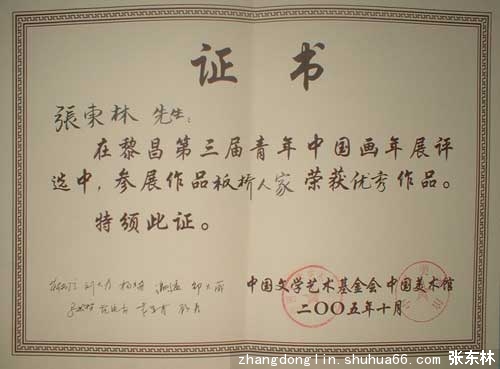 证书
張東林 先生：
在黎昌第三届青年中国画年展评
选中，参展作品板桥人家荣获优秀作品。
特颁此证。
中国文学艺术基金会 中国美术馆
二〇〇五年十月
zhangdonglin.shuhua66.com 张东林